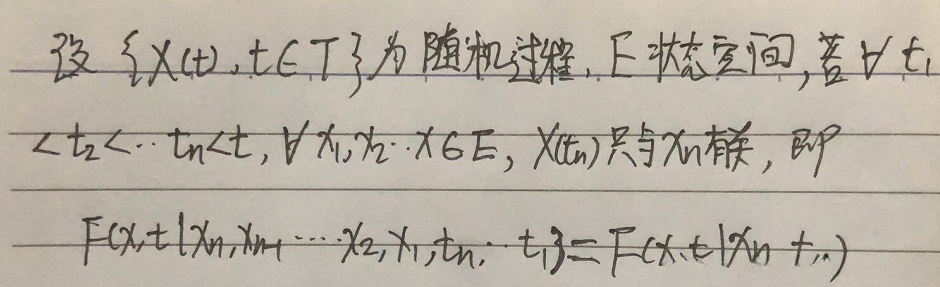 设 {X(t), t∈T} 为随机过程, E状态空间, 若∀t₁
<t₂<‥tₙ<t, ∀x₁,x₂‥x∈E, X(tₙ)只与xₙ有关, 即
F(x,t|xₙ,xₙ₋₁…‥x₂,x₁,tₙ,‥t₁)=F(x,t|xₙ tₙ)